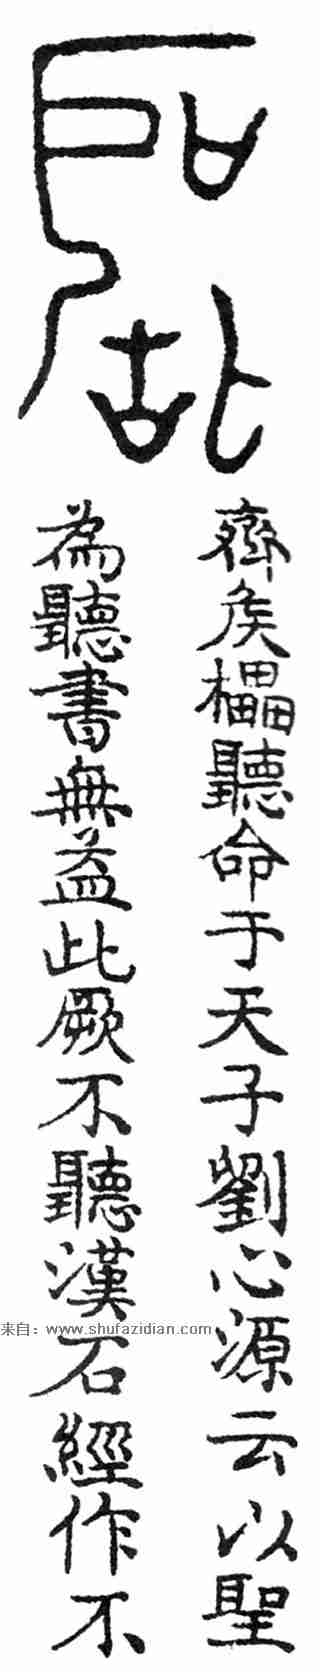 齊侯櫑聽命于天子劉心源云以聖
為聽書無益此厥不聽漢石經作不
来自：www.shufazidian.com